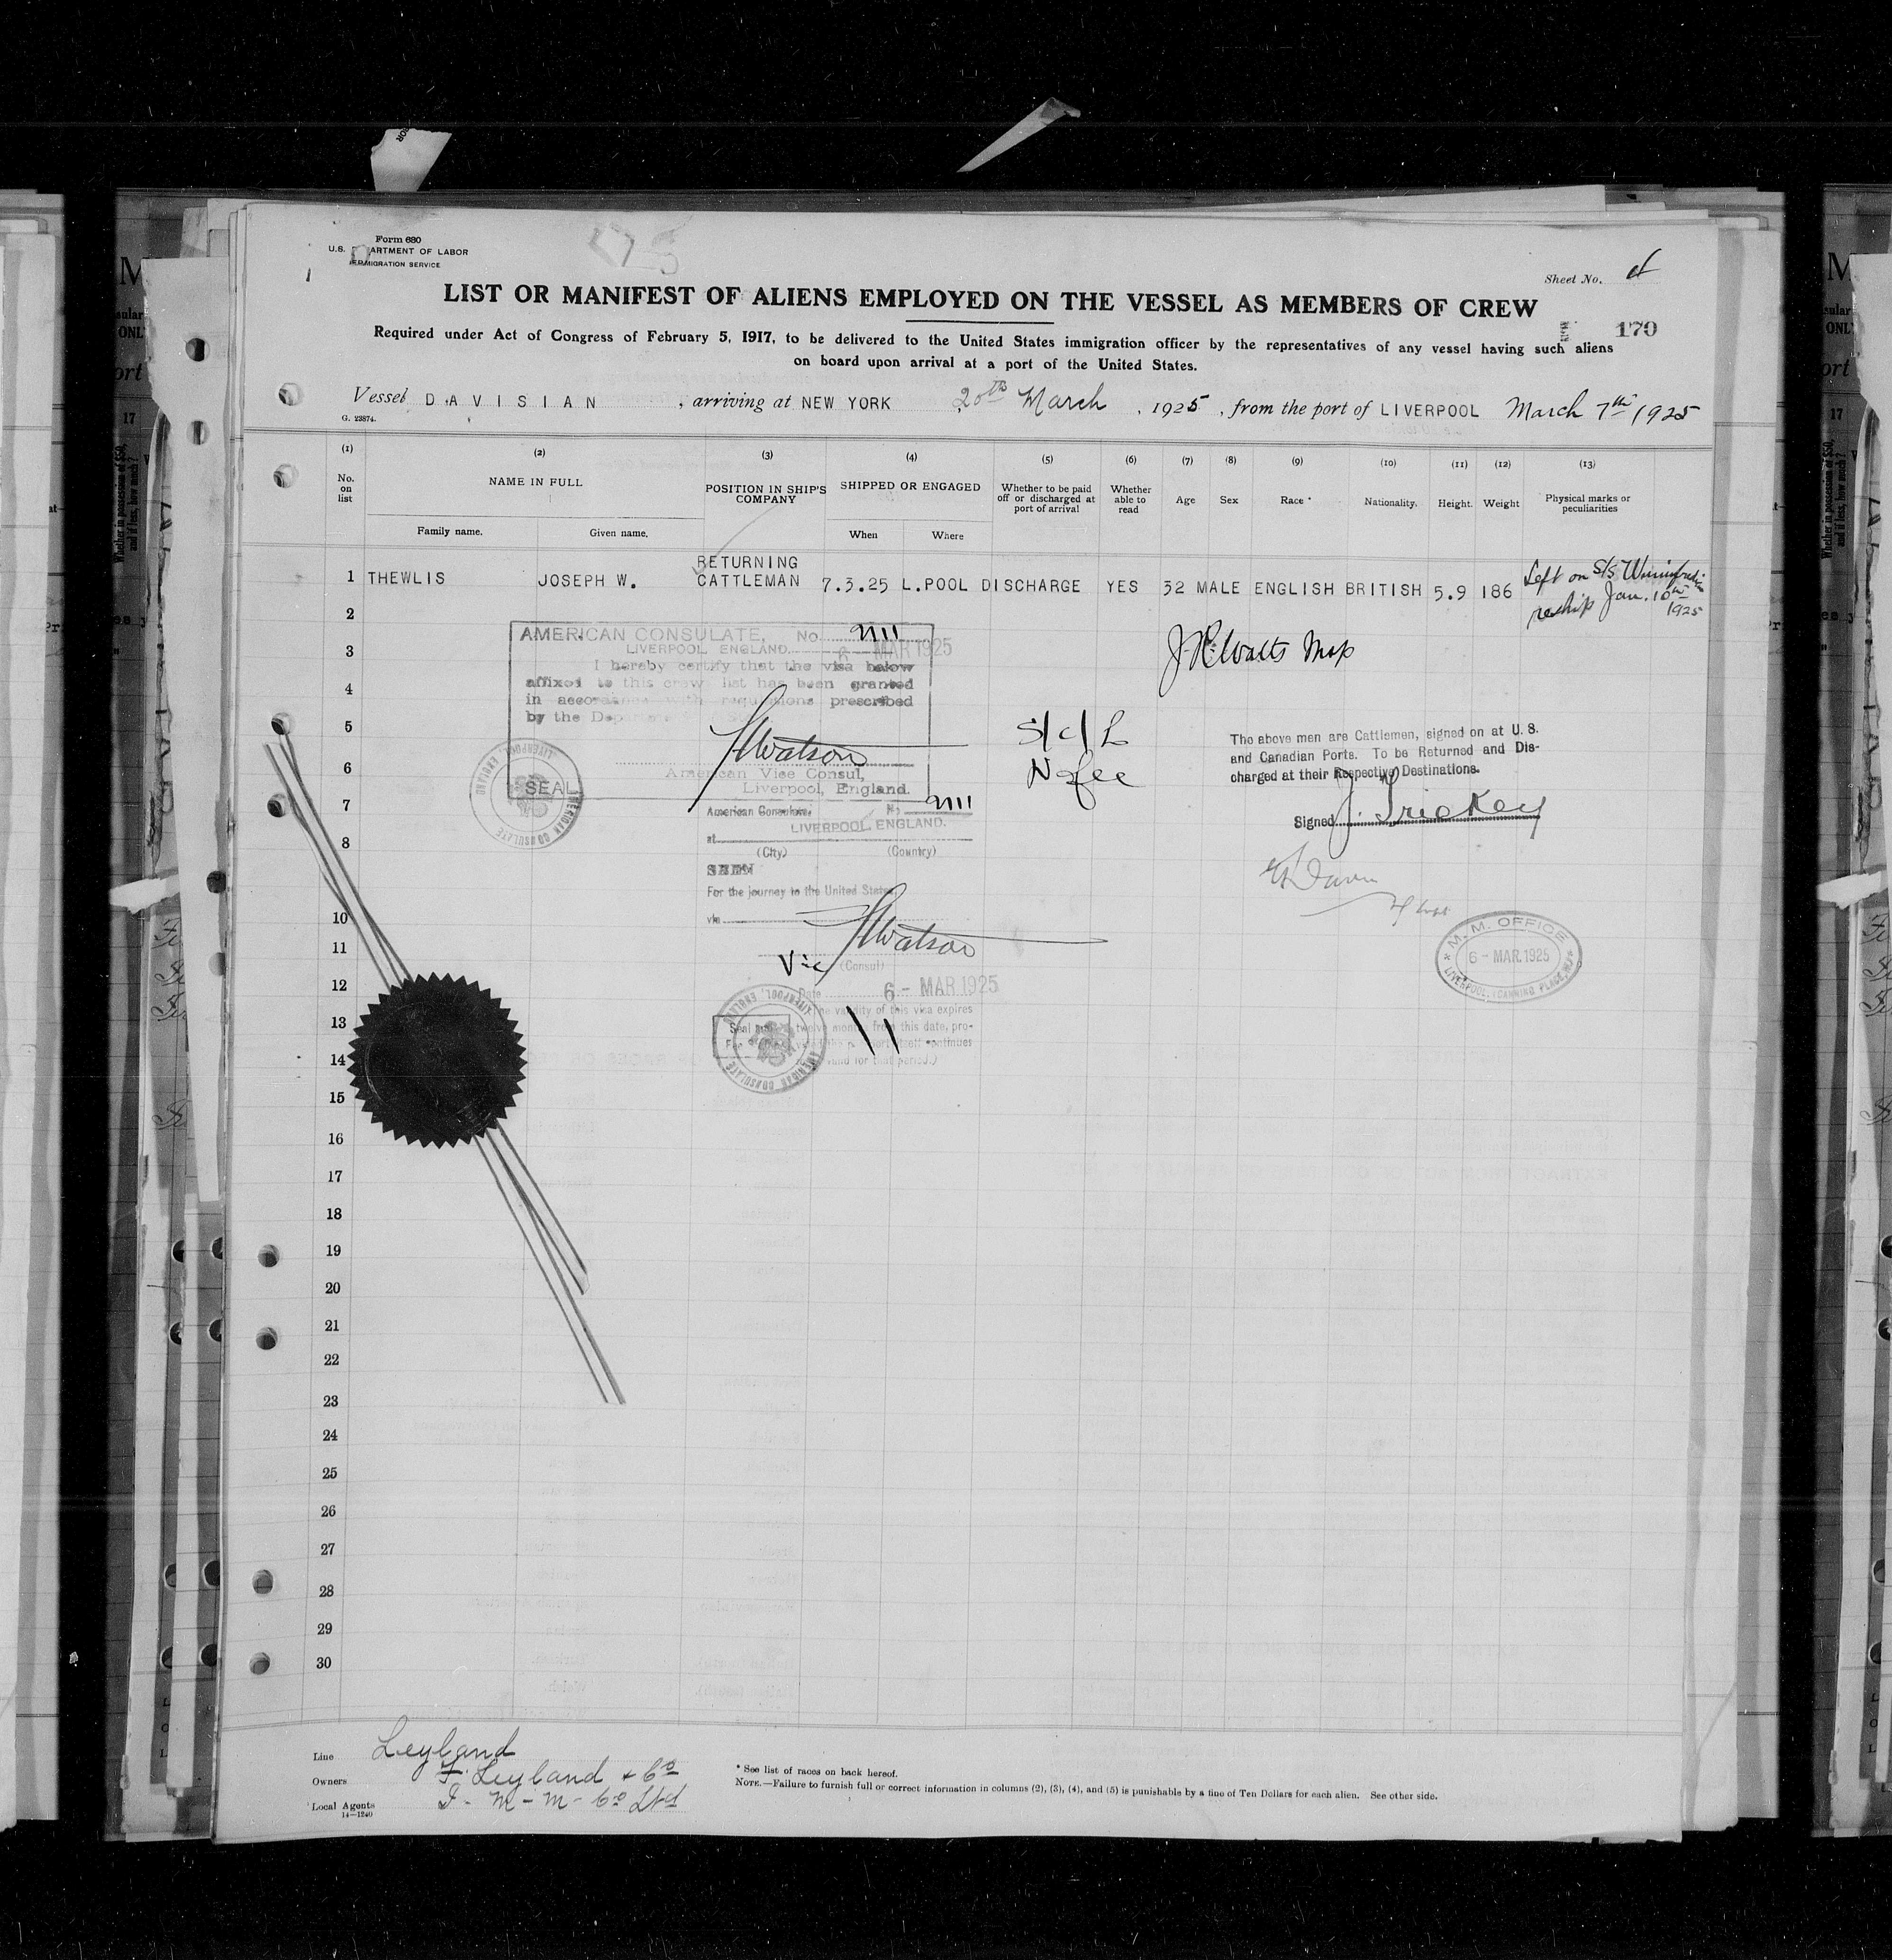 Form 680
U.S. DEPARTMENT OF LABOR
IMMIGRATION SERVICE
Sheet No.
LIST OR MANIFEST OF ALIENS EMPLOYED ON THE VESSEL AS MEMBERS OF CREW
170
Required under Act of Congress of February 5, 1917, to be delivered to the United States immigration officer by the representatives of any vessel having such aliens
on board upon arrival at a port of the United States.
Vessel DAVISIAN , arriving at NEW YORK 20th March , 1925 , from the port of LIVERPOOL March 7th 1925
G. 23874.
(1) (2) (3) (4) (5) (6) (7) (8) (9) (10) (11) (12) (13)
No. on list NAME IN FULL POSITION IN SHIP'S COMPANY SHIPPED OR ENGAGED Whether to be paid off or discharged at port of arrival Whether able to read Age Sex Race * Nationality. Height. Weight Physical marks or peculiarities
Family name. Given name. When Where
1 THEWLIS JOSEPH W. RETURNING CATTLEMAN 7.3.25 L.POOL DISCHARGE YES 32 MALE ENGLISH BRITISH 5.9 186 Left on S/S
reship Jan. 10th 1925
2
AMERICAN CONSULATE, No. 2111
LIVERPOOL ENGLAND. 6 - MAR 1925
3
I hereby certify that the visa below
affixed to this crew list has been granted
4
in accordance with regulations prescribed
by the Department
5
Watson
American Vice Consul,
Liverpool, England.
SEAL
AMERICAN CONSULATE LIVERPOOL, ENGLAND
J. R. Watts
S/c/L
No fee
The above men are Cattlemen, signed on at U. S.
and Canadian Ports. To be Returned and Dis-
charged at their Respective Destinations.
Signed J. Trickey
6
7
American Consulate, No. 2111
at LIVERPOOL, ENGLAND.
8
(City) (Country)
SEEN
For the journey to the United States
via
10
Watson
11
Vice (Consul)
M. M. OFFICE
6 - MAR. 1925
LIVERPOOL, CANNING PLACE
12
Date 6 - MAR 1925
The validity of this visa expires
13
twelve months from this date, pro-
continues
14
valid for that period.)
AMERICAN CONSULATE LIVERPOOL, ENGLAND
15
16
17
18
19
20
21
22
23
24
25
26
27
28
29
30
Line Leyland
Owners F. Leyland & Co
Local Agents I - M - M - Co Ltd
14—1240
* See list of races on back hereof.
NOTE.—Failure to furnish full or correct information in columns (2), (3), (4), and (5) is punishable by a fine of Ten Dollars for each alien. See other side.